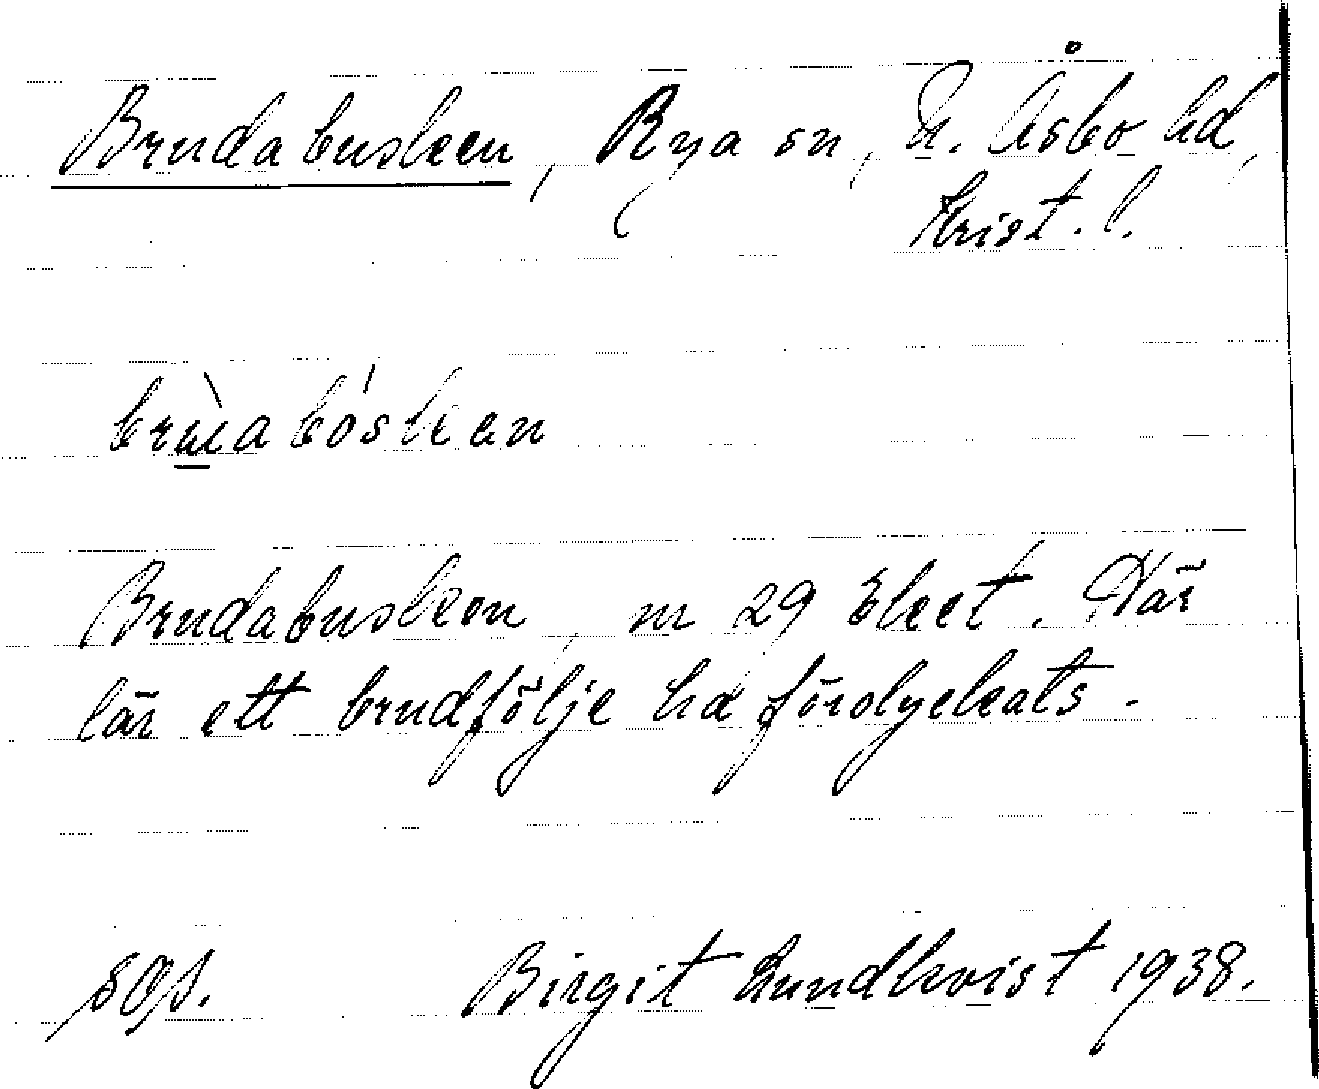 Brudabusken, Rya sn, N. Åsbo hd,
Krist. l.
brùabóskan
Brudabusken, nr 29 Eket. Här
lär ett brudfölje ha förolyckats.
Birgit Lundkvist 1938.